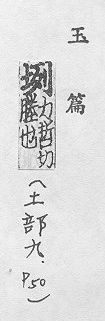 玉篇
力哲切
塍也
(土部九. P50)